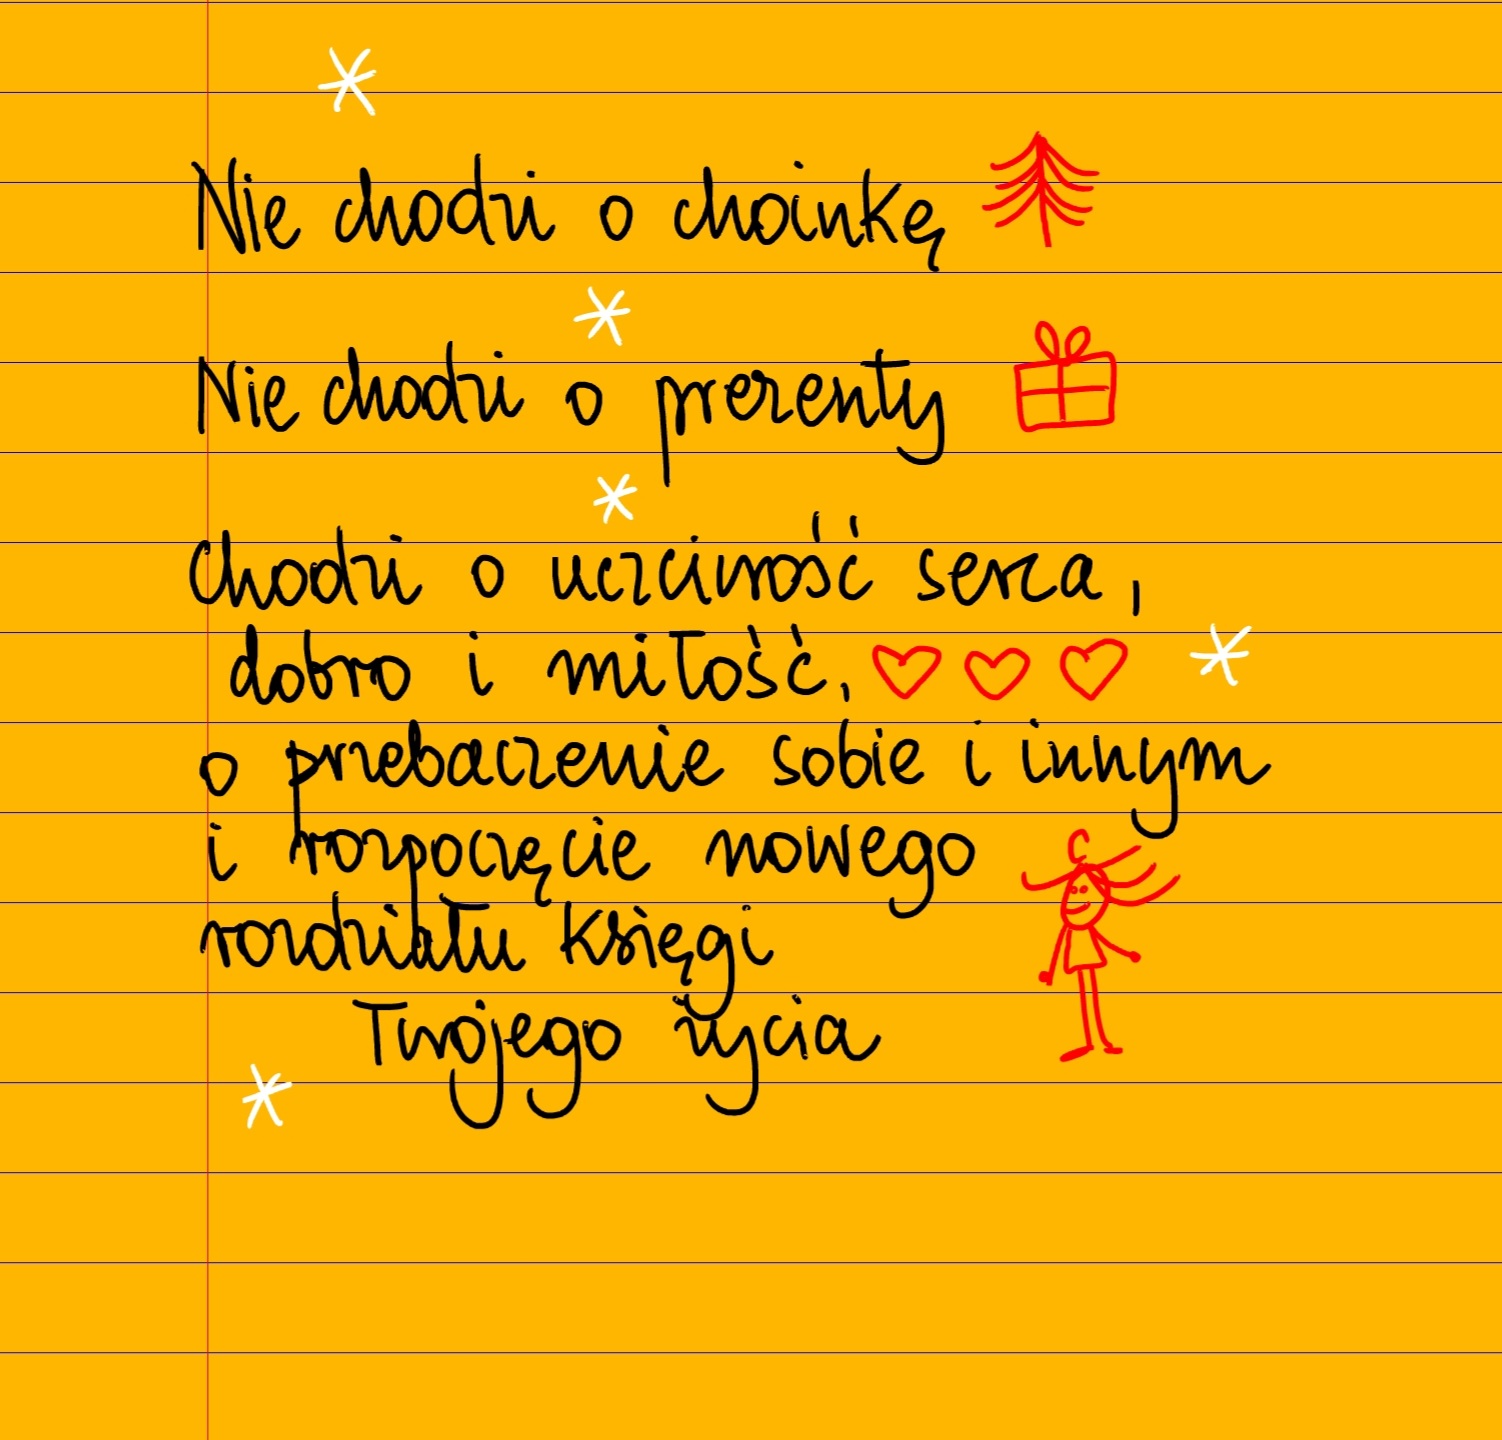 Nie chodzi o choinkę
Nie chodzi o prezenty
Chodzi o uczciwość serca,
dobro i miłość,
o przebaczenie sobie i innym
i rozpoczęcie nowego
rozdziału Księgi
Twojego życia